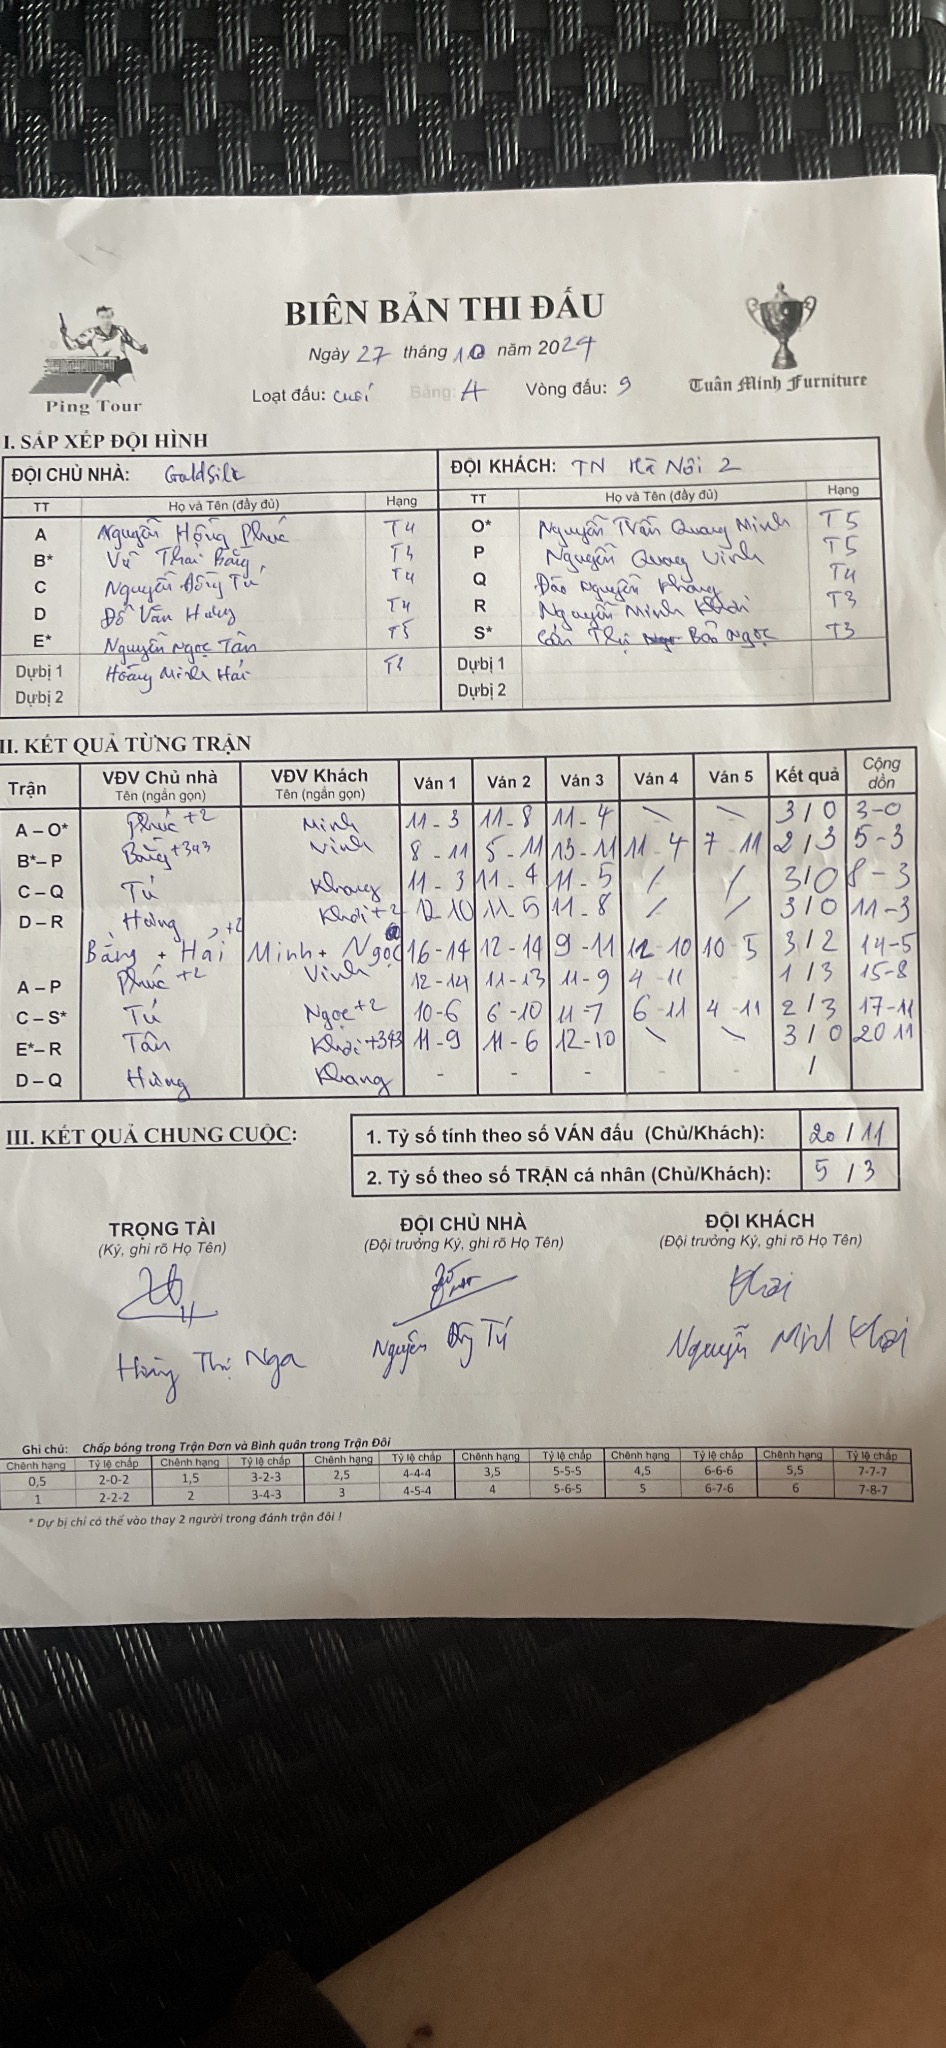 BIÊN BẢN THI ĐẤU
Ngày 27 tháng 10 năm 2024
Loạt đấu: cuối Bảng: A Vòng đấu: 9
Ping Tour
Tuân Minh Furniture
I. SẮP XẾP ĐỘI HÌNH
ĐỘI CHỦ NHÀ: GoldSilk ĐỘI KHÁCH: TN Hà Nội 2
TT Họ và Tên (đầy đủ) Hạng TT Họ và Tên (đầy đủ) Hạng
A Nguyễn Hồng Phúc T4 O* Nguyễn Trần Quang Minh T5
B* Vũ Thái Bằng T3 P Nguyễn Quang Vinh T5
C Nguyễn Đông Tú T4 Q Đào Nguyên Khang T4
D Đỗ Văn Hưng T4 R Nguyễn Minh Khôi T3
E* Nguyễn Ngọc Tân T5 S* Cấn Thị Bảo Ngọc T3
Dự bị 1 Hoàng Minh Hải Dự bị 1
Dự bị 2 Dự bị 2
II. KẾT QUẢ TỪNG TRẬN
Trận VĐV Chủ nhà VĐV Khách Ván 1 Ván 2 Ván 3 Ván 4 Ván 5 Kết quả Cộng dồn
Tên (ngắn gọn) Tên (ngắn gọn)
A – O* Phúc +2 Minh 11-3 11-8 11-4 \ \ 3/0 3-0
B*– P Bằng +343 Vinh 8-11 5-11 13-11 11-4 7-11 2/3 5-3
C – Q Tú Khang 11-3 11-4 11-5 / / 3/0 8-3
D – R Hưng Khôi +2 12-10 11-5 11-8 / / 3/0 11-3
Bằng + Hải +2 Minh + Ngọc 16-14 12-14 9-11 12-10 10-5 3/2 14-5
A – P Phúc +2 Vinh 12-14 11-13 11-9 4-11 - 1/3 15-8
C – S* Tú Ngọc +2 10-6 6-10 11-7 6-11 4-11 2/3 17-11
E*– R Tân Khôi +343 11-9 11-6 12-10 \ \ 3/0 20 11
D – Q Hưng Khang - - - - - /
III. KẾT QUẢ CHUNG CUỘC:
1. Tỷ số tính theo số VÁN đấu (Chủ/Khách): 20/11
2. Tỷ số theo số TRẬN cá nhân (Chủ/Khách): 5/3
TRỌNG TÀI ĐỘI CHỦ NHÀ ĐỘI KHÁCH
(Ký, ghi rõ Họ Tên) (Đội trưởng Ký, ghi rõ Họ Tên) (Đội trưởng Ký, ghi rõ Họ Tên)
Khôi
Hoàng Thị Nga Nguyễn Đông Tú Nguyễn Minh Khôi
Ghi chú: Chấp bóng trong Trận Đơn và Bình quân trong Trận Đôi
Chênh hạng Tỷ lệ chấp Chênh hạng Tỷ lệ chấp Chênh hạng Tỷ lệ chấp Chênh hạng Tỷ lệ chấp Chênh hạng Tỷ lệ chấp Chênh hạng Tỷ lệ chấp
0,5 2-0-2 1,5 3-2-3 2,5 4-4-4 3,5 5-5-5 4,5 6-6-6 5,5 7-7-7
1 2-2-2 2 3-4-3 3 4-5-4 4 5-6-5 5 6-7-6 6 7-8-7
* Dự bị chỉ có thể vào thay 2 người trong đánh trận đôi !